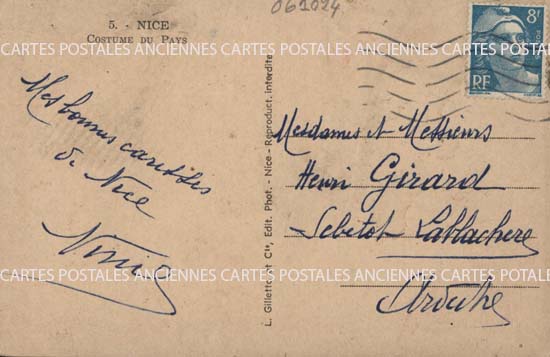 061024
5. - NICE
COSTUME DU PAYS
8f
RF
CARTES POSTALES ANCIENNES CARTES POSTALES ANCIENNES CARTES POSTALES
Mes bonnes
de Nice
L. Gilletta et Cie, Edit. Phot. - Nice - Reproduct. interdite
Mesdames et Messieurs
Henri Girard
Lablachère
Ardèche
CARTES POSTALES ANCIENNES CARTES POSTALES ANCIENNES CARTES POSTALES